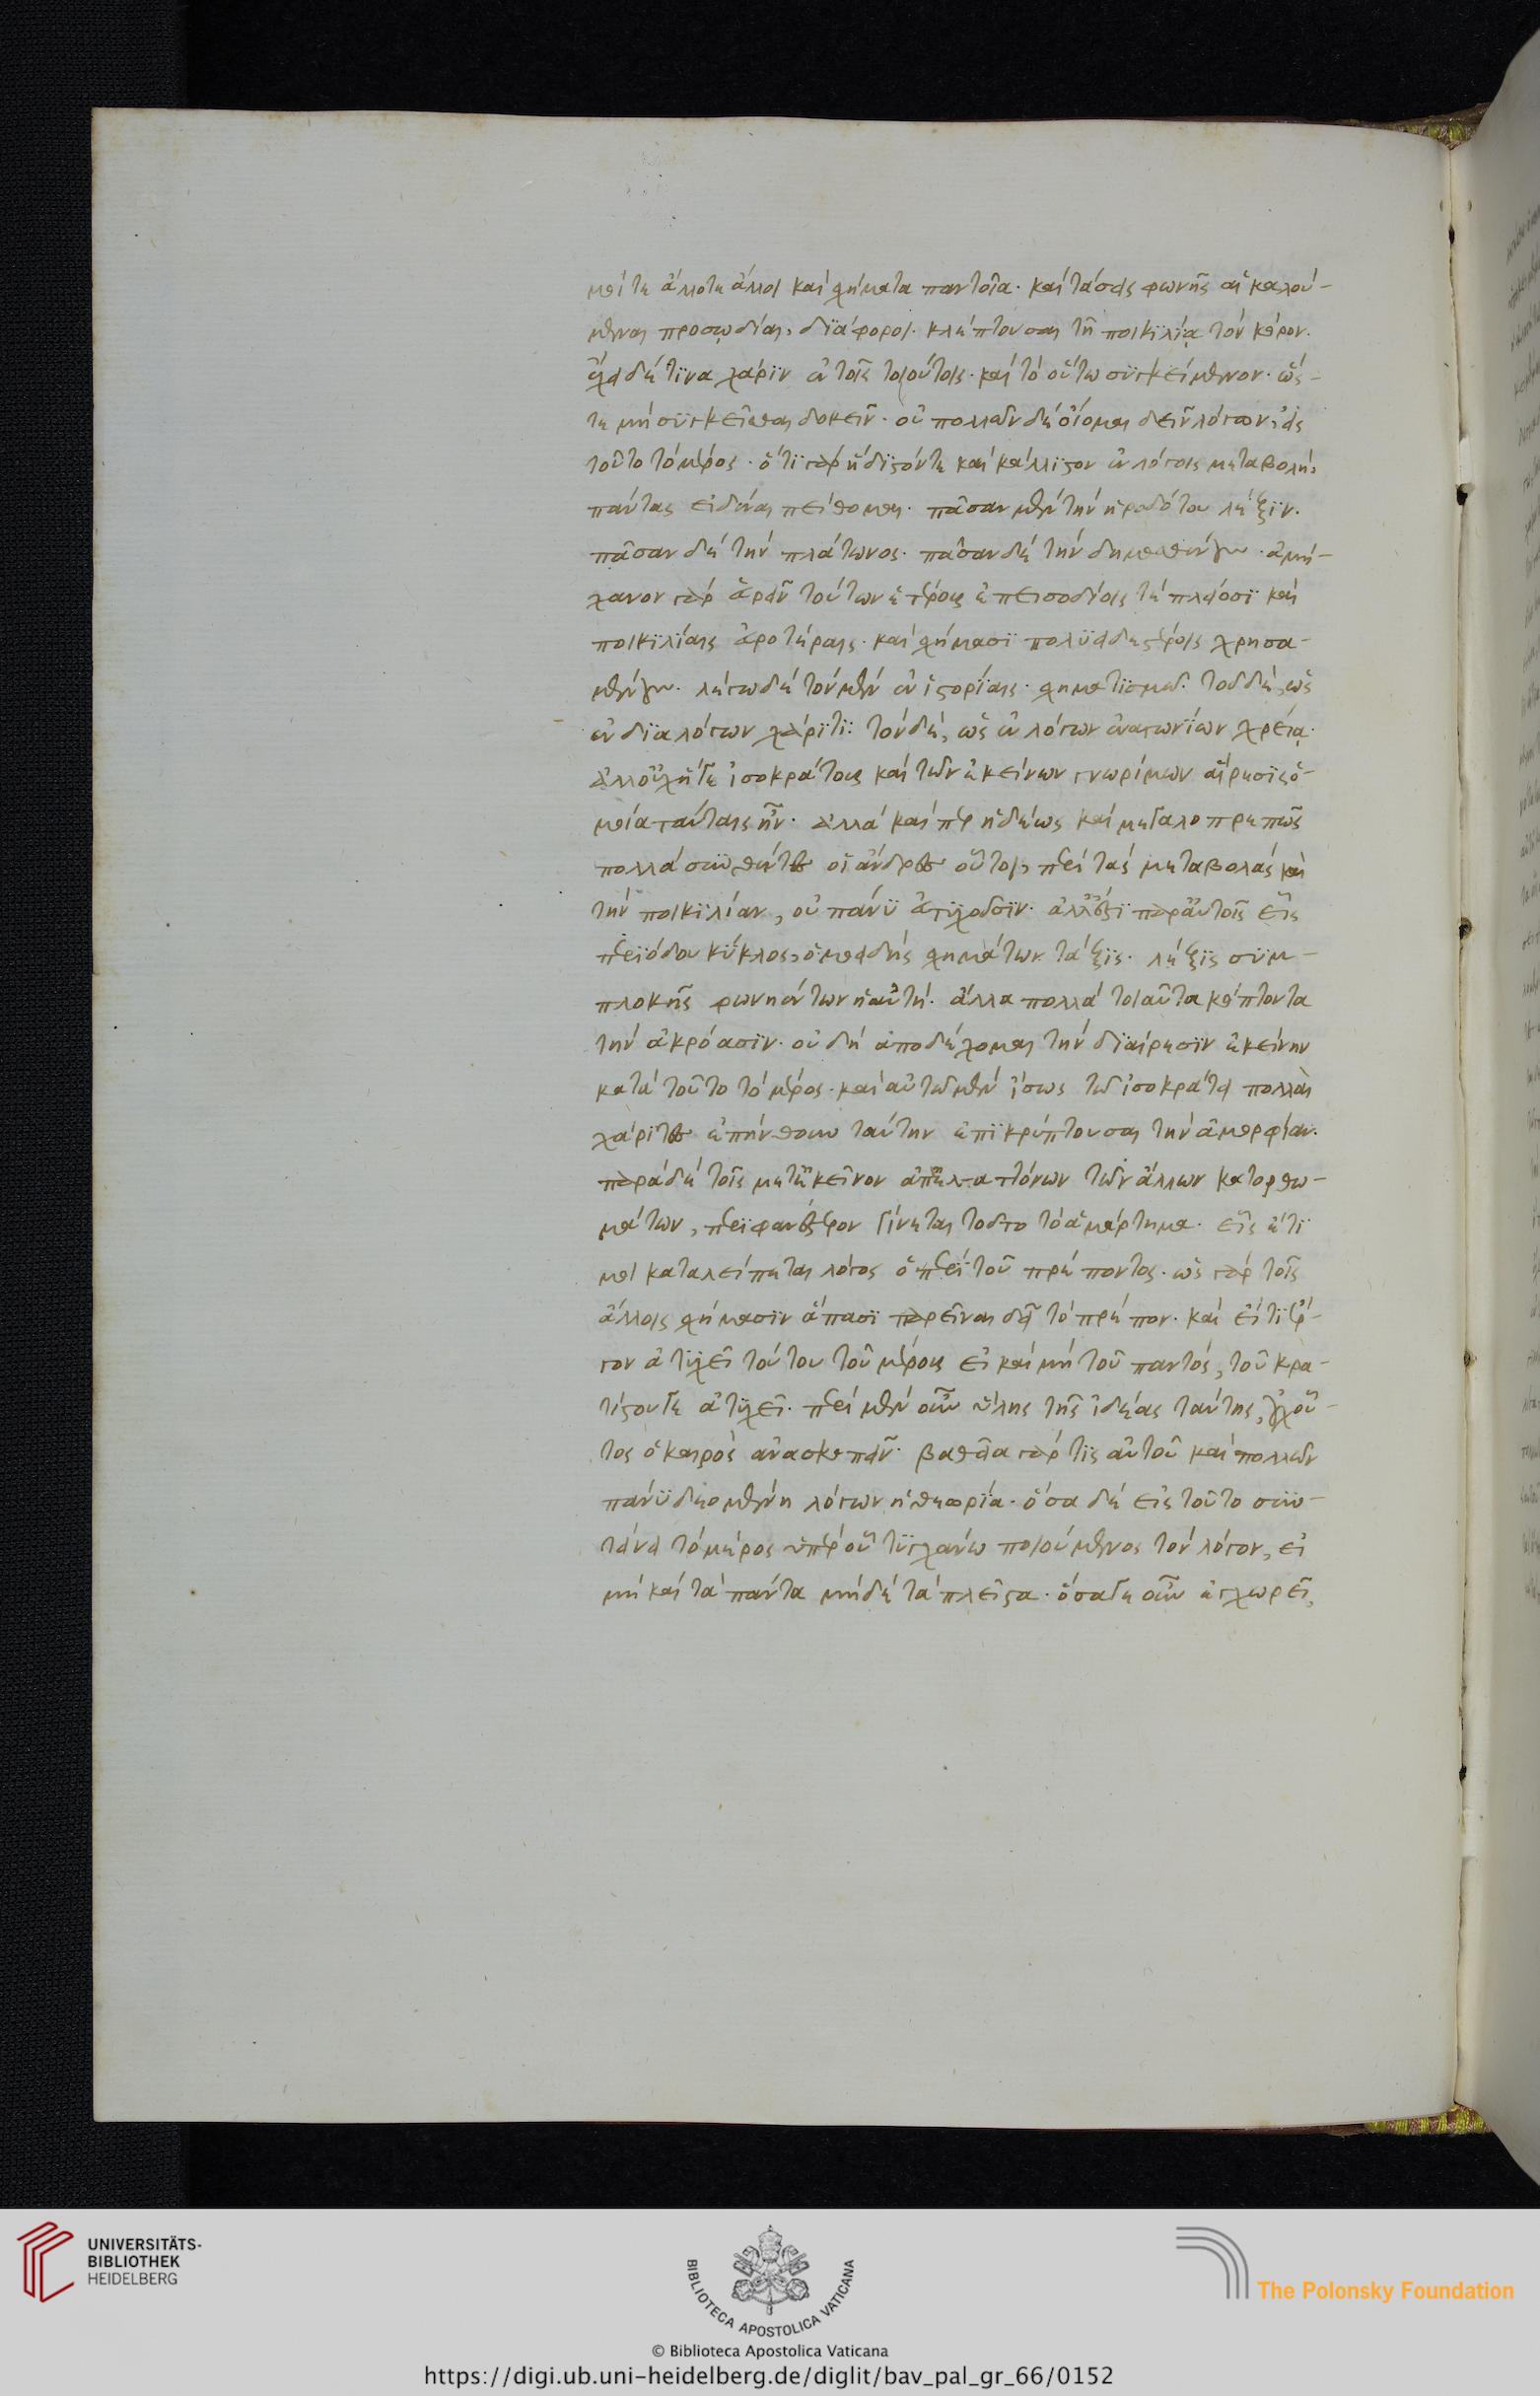 μοί τε ἄλλοτε ἄλλοι καὶ σχήματα παντοῖα· καὶ τάσεις φωνῆς αἱ καλού-
μεναι προσῳδίαι, διάφοροι· κλέπτουσαι τῇ ποικιλίᾳ τὸν κόρον.
ἔχει δέ τινα χάριν ἐν τοῖς τοιούτοις· καὶ τὸ οὕτω συγκείμενον· ὥσ-
τε μὴ συγκεῖσθαι δοκεῖν· οὐ πολλῶν δὲ οἴομαι δεῖν λόγων, εἰς
τοῦτο τὸ μέρος· ὅτι γὰρ ἥδιστόν τε καὶ κάλλιστον ἐν λόγοις μεταβολή,
πάντας εἰδέναι πείθομαι· πᾶσαν μὲν τὴν ἡροδότου λέξιν·
πᾶσαν δὲ τὴν πλάτωνος· πᾶσαν δὲ τὴν δημοσθένους· ἀμή-
χανον γὰρ εὑρεῖν τούτων ἑτέρους ἐπεισοδίοις τε πλείοσι καὶ
ποικιλίαις εὐροτέραις· καὶ σχήμασι πολυειδεστέροις χρησα-
μένους· λέγω δὲ τὸν μὲν ἐν ἱστορίας σχηματισμῷ· τὸν δὲ, ὡς
ἐν διαλόγων χάριτι: τὸν δὲ, ὡς ἐν λόγων ἐναγωνίων χρείᾳ·
ἀλλ' οὐχ ἥ τε ἰσοκράτους καὶ τῶν ἐκείνων γνωρίμων αἵρεσις ὁ-
μοία ταύταις ἦν· ἀλλὰ καίπερ ἡδέως καὶ μεγαλοπρεπῶς
πολλὰ συνθέντες οἱ ἄνδρες οὗτοι, περὶ τὰς μεταβολὰς καὶ
τὴν ποικιλίαν, οὐ πάνυ εὐτυχοῦσιν· ἀλλ' ἔστι παρ' αὐτοῖς εἷς
περιόδου κύκλος, ὁμοειδὴς σχημάτων τάξις· λέξις συμ-
πλοκῆς φωνηέντων ἡ αὐτή· ἄλλα πολλὰ τοιαῦτα κόπτοντα
τὴν ἀκρόασιν· οὐ δὴ ἀποδέχομαι τὴν διαίρεσιν ἐκείνην
κατὰ τοῦτο τὸ μέρος· καὶ αὐτῷ μὲν ἴσως τῷ ἰσοκράτει πολλαὶ
χάριτες ἐπήνθουν ταύτην ἐπικρύπτουσαι τὴν ἀμορφίαν.
παρὰ δὲ τοῖς μετ' ἐκεῖνον ἀπ' ἐλαττόνων τῶν ἄλλων κατορθω-
μάτων, περιφανέστερον γίνεται τοῦτο τὸ ἁμάρτημα· εἷς ἔτι
μοι καταλείπεται λόγος ὁ περὶ τοῦ πρέποντος· ὡς γὰρ τοῖς
ἄλλοις σχήμασιν ἅπασι παρεῖναι δεῖ τὸ πρέπον· καὶ εἴ τι ἔρ-
γον ἀτυχεῖ τούτου τοῦ μέρους εἰ καὶ μὴ τοῦ παντός, τοῦ κρα-
τίστου γε ἀτυχεῖ· περὶ μὲν οὖν ὅλης τῆς ἰδέας ταύτης, οὐχ οὗ-
τος ὁ καιρὸς ἀνασκοπεῖν· βαθεῖα γάρ τις αὐτοῦ καὶ πολλῶν
πάνυ δεομένη λόγων ἡ θεωρία· ὅσα δὲ εἰς τοῦτο συν-
τείνει τὸ μέρος ὑπὲρ οὗ τυγχάνω ποιούμενος τὸν λόγον, εἰ
μὴ καὶ τὰ πάντα μηδὲ τὰ πλεῖστα· ὅσα γε οὖν ἐγχωρεῖ,
UNIVERSITÄTS-
BIBLIOTHEK
HEIDELBERG
BIBLIOTECA APOSTOLICA VATICANA
The Polonsky Foundation
© Biblioteca Apostolica Vaticana
https://digi.ub.uni-heidelberg.de/diglit/bav_pal_gr_66/0152